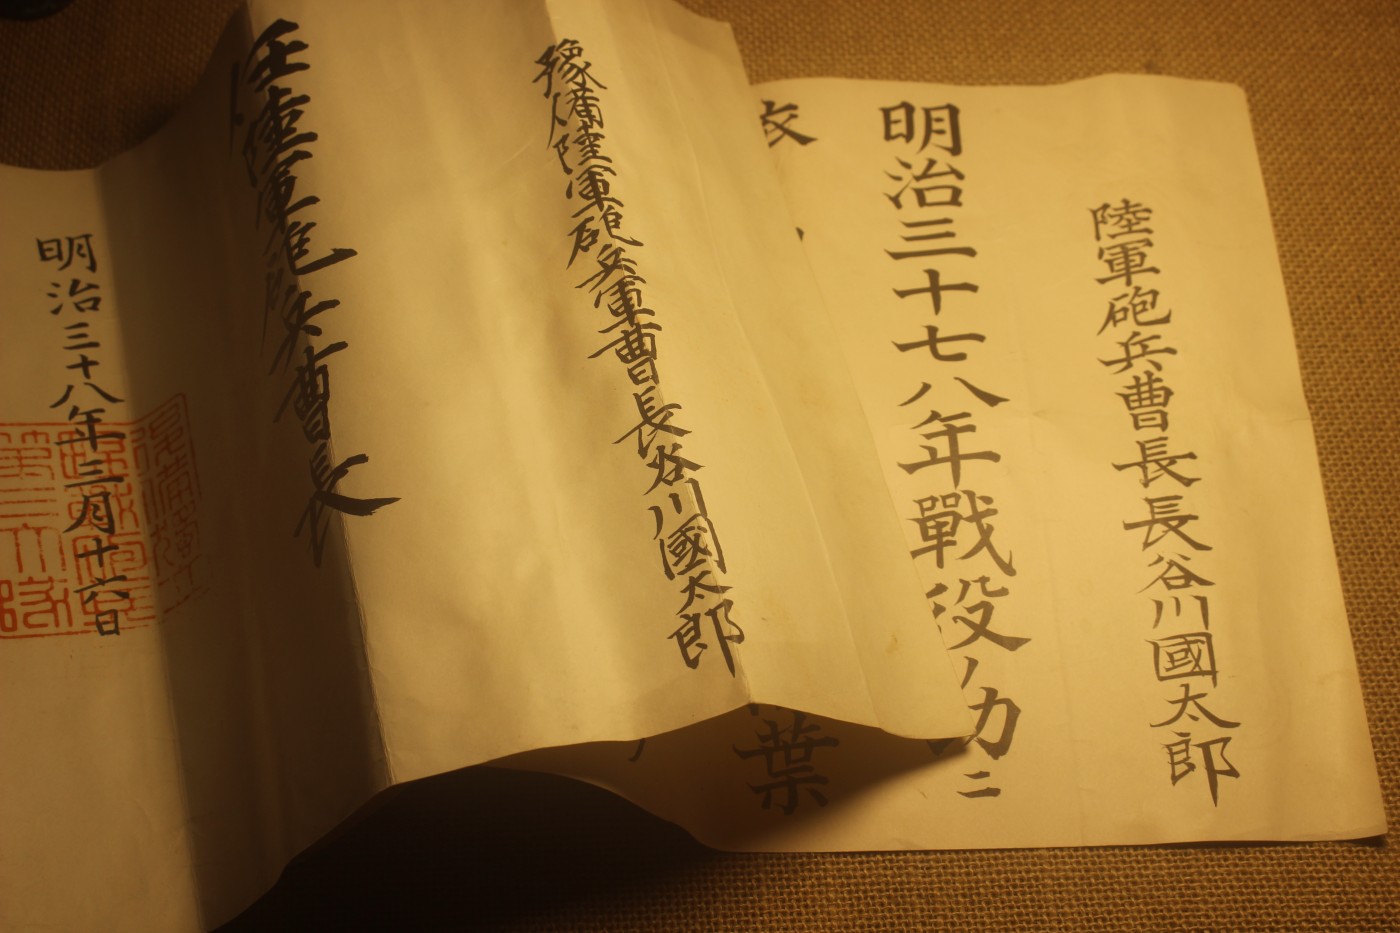 陸軍砲兵曹長長谷川國太郎
明治三十七八年戰役ノ功ニ
依
葉
豫備陸軍砲兵軍曹長谷川國太郎
任陸軍砲兵曹長
明治三十八年三月十六日